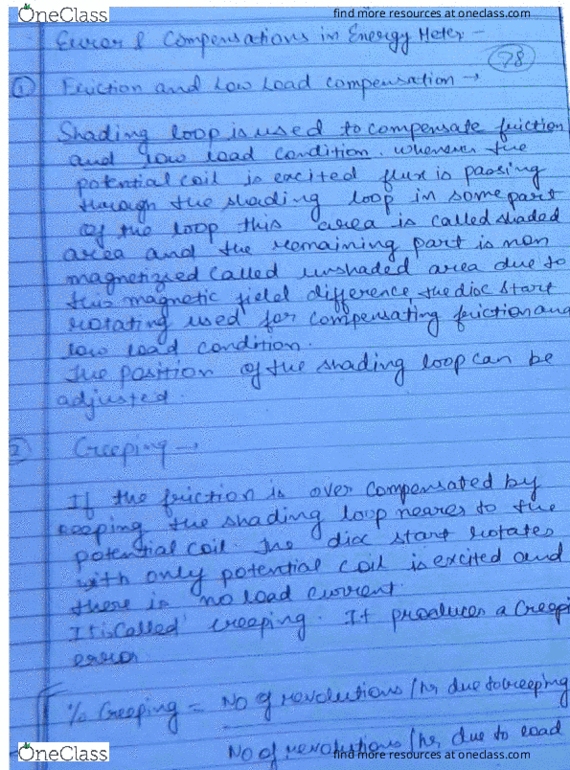 OneClass
find more resources at oneclass.com
Error & Compensations in Energy Meter -
78
① Friction and Low Load compensation →
Shading loop is used to compensate friction
and low load condition. whenever the
potential coil is excited flux is passing
through the shading loop in some part
of the loop this area is called shaded
area and the remaining part is non
magnetized called unshaded area due to
this magnetic field difference, the disc start
rotating used for compensating friction and
low load condition.
The position of the shading loop can be
adjusted.
2 Creeping →
If the friction is over compensated by
keeping the shading loop nearer to the
potential coil. The disc start rotates
with only potential coil is excited and
there is no load current.
It is called creeping. It produces a Creepi
error
% Creeping = No of revolutions/hr due to creeping
No of revolutions/hr, due to load
OneClass
find more resources at oneclass.com